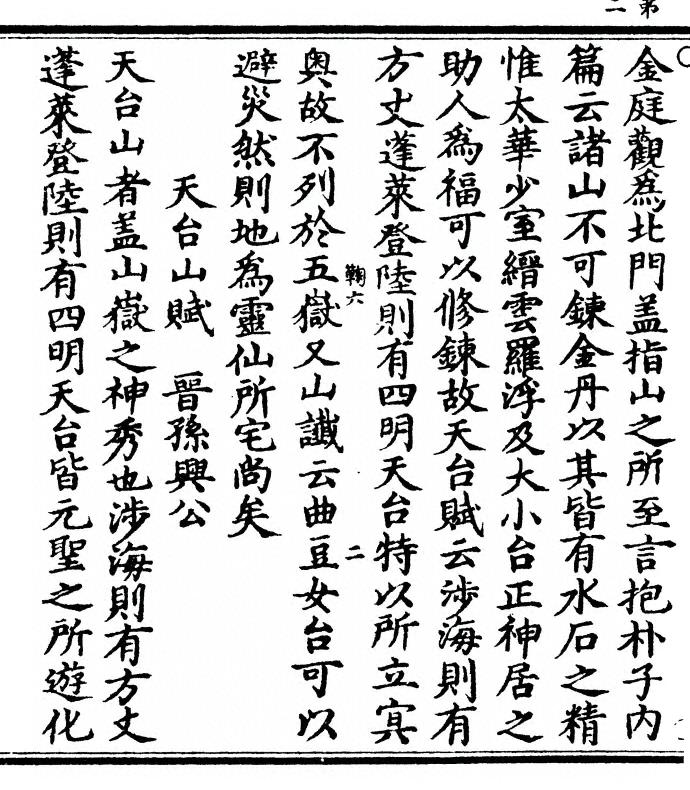 金庭觀爲北門盖指山之所至言抱朴子内
篇云諸山不可鍊金丹以其皆有水石之精
惟太華少室縉雲羅浮及大小台正神居之
助人爲福可以修鍊故天台賦云涉海則有
方丈蓬萊登陸則有四明天台特以所立冥
鞠六
二
奥故不列於五嶽又山讖云曲豆女台可以
避災然則地爲靈仙所宅尚矣
天台山賦 晉孫興公
天台山者盖山嶽之神秀也涉海則有方丈
蓬萊登陸則有四明天台皆元聖之所遊化